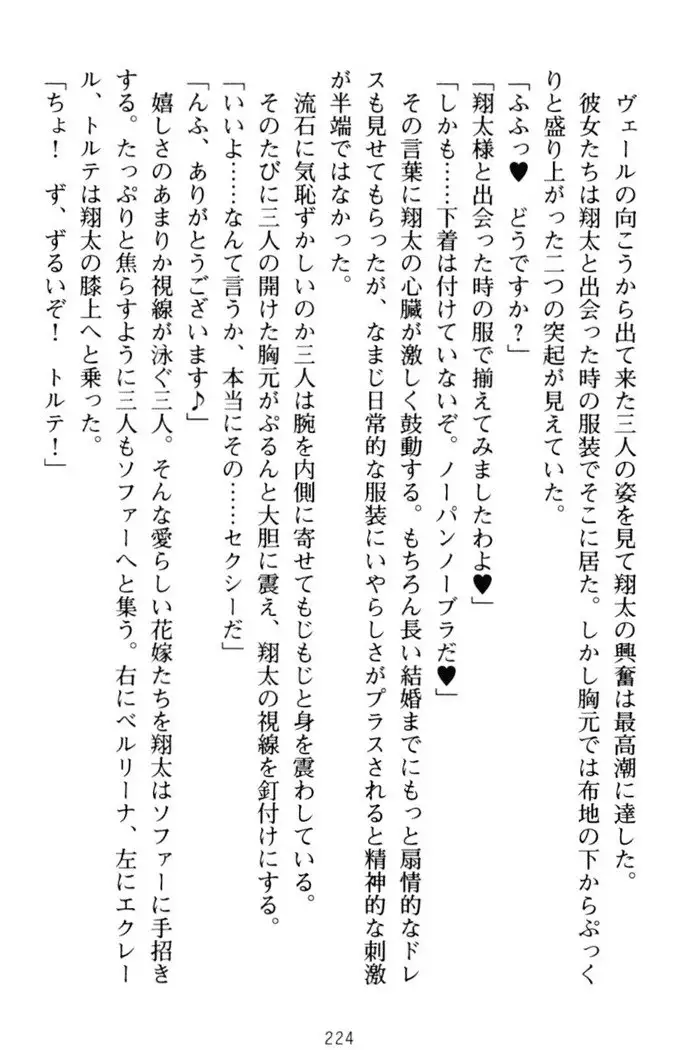 ヴェールの向こうから出て来た三人の姿を見て翔太の興奮は最高潮に達した。
彼女たちは翔太と出会った時の服装でそこに居た。しかし胸元では布地の下からぷっく
りと盛り上がった二つの突起が見えていた。
「ふふっ♥　どうですか?」
「翔太様と出会った時の服で揃えてみましたわよ♥」
「しかも……下着は付けていないぞ。ノーパンノーブラだ♥」
その言葉に翔太の心臓が激しく鼓動する。もちろん長い結婚までにもっと扇情的なドレ
スも見せてもらったが、なまじ日常的な服装にいやらしさがプラスされると精神的な刺激
が半端ではなかった。
流石に気恥ずかしいのか三人は腕を内側に寄せてもじもじと身を震わしている。
そのたびに三人の開けた胸元がぷるんと大胆に震え、翔太の視線を釘付けにする。
「いいよ……なんて言うか、本当にその……セクシーだ」
「んふ、ありがとうございます♪」
嬉しさのあまりか視線が泳ぐ三人。そんな愛らしい花嫁たちを翔太はソファーに手招き
する。たっぷりと焦らすように三人もソファーへと集う。右にベルリーナ、左にエクレー
ル、トルテは翔太の膝上へと乗った。
「ちょ!　ず、ずるいぞ!　トルテ!」
224